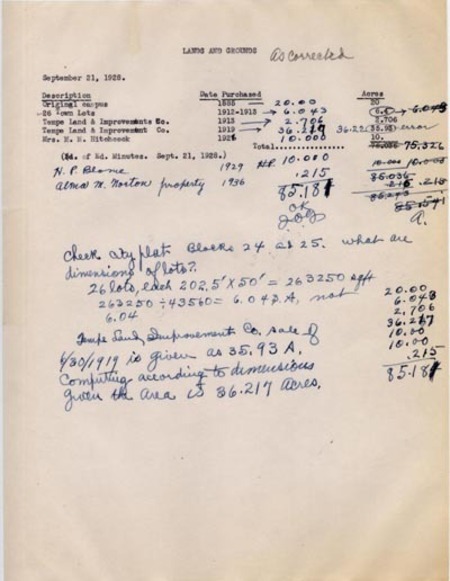 LANDS AND GROUNDS
As corrected
September 21, 1928.
Description Date Purchased Acres
Original campus 1885 20.00 20
26 Town Lots 1912-1913 6.043 6.043
Tempe Land & Improvements Co. 1913 2.706 2.706
Tempe Land & Improvement Co. 1919 36.217 35.93 error
Mrs. M. H. Hitchcock 10.000 10.
Total 75.326
(Bd. of Ed. Minutes. Sept. 21, 1928.)
H. P. Blome 1929 10.000
Alma M. Norton property 1936 .215 .215
85.181
OK
Check city plat Blocks 24 & 25. What are
dimensions of lots?
26 lots, each 202.5' x 50' = 263250 sq ft
263250 ÷ 43560 = 6.043 A, not
6.04
Tempe Land Improvement Co. sale of
6/30/1919 is given as 35.93 A.
Computing according to dimensions
given the area is 36.217 acres.
20.00
6.043
2.706
36.217
10.00
10.00
.215
85.181